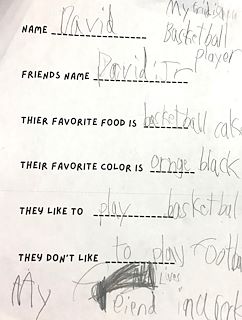 My frind is a
NAME David Basketball
player
FRIENDS NAME David Jr
THIER FAVORITE FOOD IS basketball cake
THEIR FAVORITE COLOR IS ornge black
THEY LIKE TO play basketball
THEY DON'T LIKE to play Footba
Lives
My Friend in